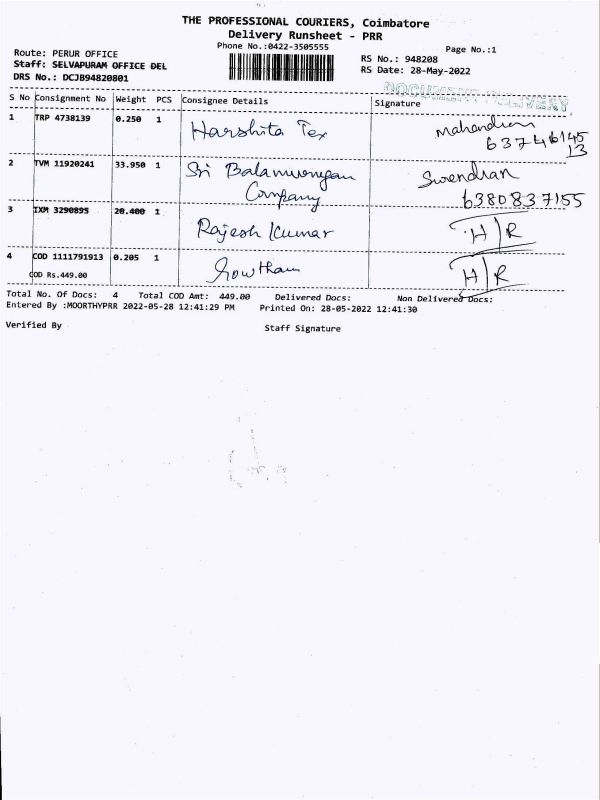 THE PROFESSIONAL COURIERS, Coimbatore
Delivery Runsheet - PRR
Phone No.:0422-3505555
Page No.:1
Route: PERUR OFFICE
Staff: SELVAPURAM OFFICE DEL
DRS No.: DCJB94820801
RS No.: 948208
RS Date: 28-May-2022
S No Consignment No Weight PCS Consignee Details Signature
1 TRP 4738139 0.250 1 Harshita Tex
63746145
13
2 TVM 11920241 33.950 1 Sri Balamurugan Surendran
Company 6380837155
3 IXM 3290895 20.400 1 Rajesh Kumar H/R
4 COD 1111791913 0.205 1 Gowtham H/R
COD Rs.449.00
Total No. Of Docs: 4 Total COD Amt: 449.00 Delivered Docs: Non Delivered Docs:
Entered By :MOORTHYPRR 2022-05-28 12:41:29 PM Printed On: 28-05-2022 12:41:30
Verified By Staff Signature